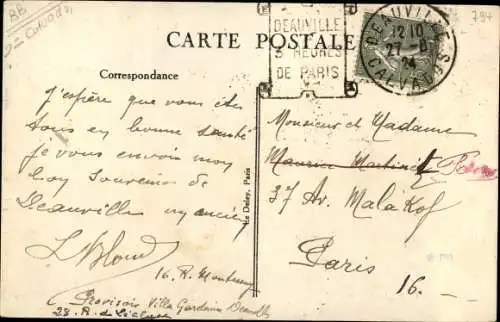 BB
Calvados
794
CARTE POSTALE
DEAUVILLE
3 HEURES
DE PARIS
DEAUVILLE
12 10
27 - 8
24
CALVADOS
Correspondance
J'espère que vous êtes
tous en bonne santé
je vous envois mon
bon souvenir de
Deauville
L. Blond
16, R. Montessuy
Provisoir Villa Deauville
28, R. de
Paris
Monsieur et Madame
Maurice Martinet
37 Av. Malakof
Paris
16 -